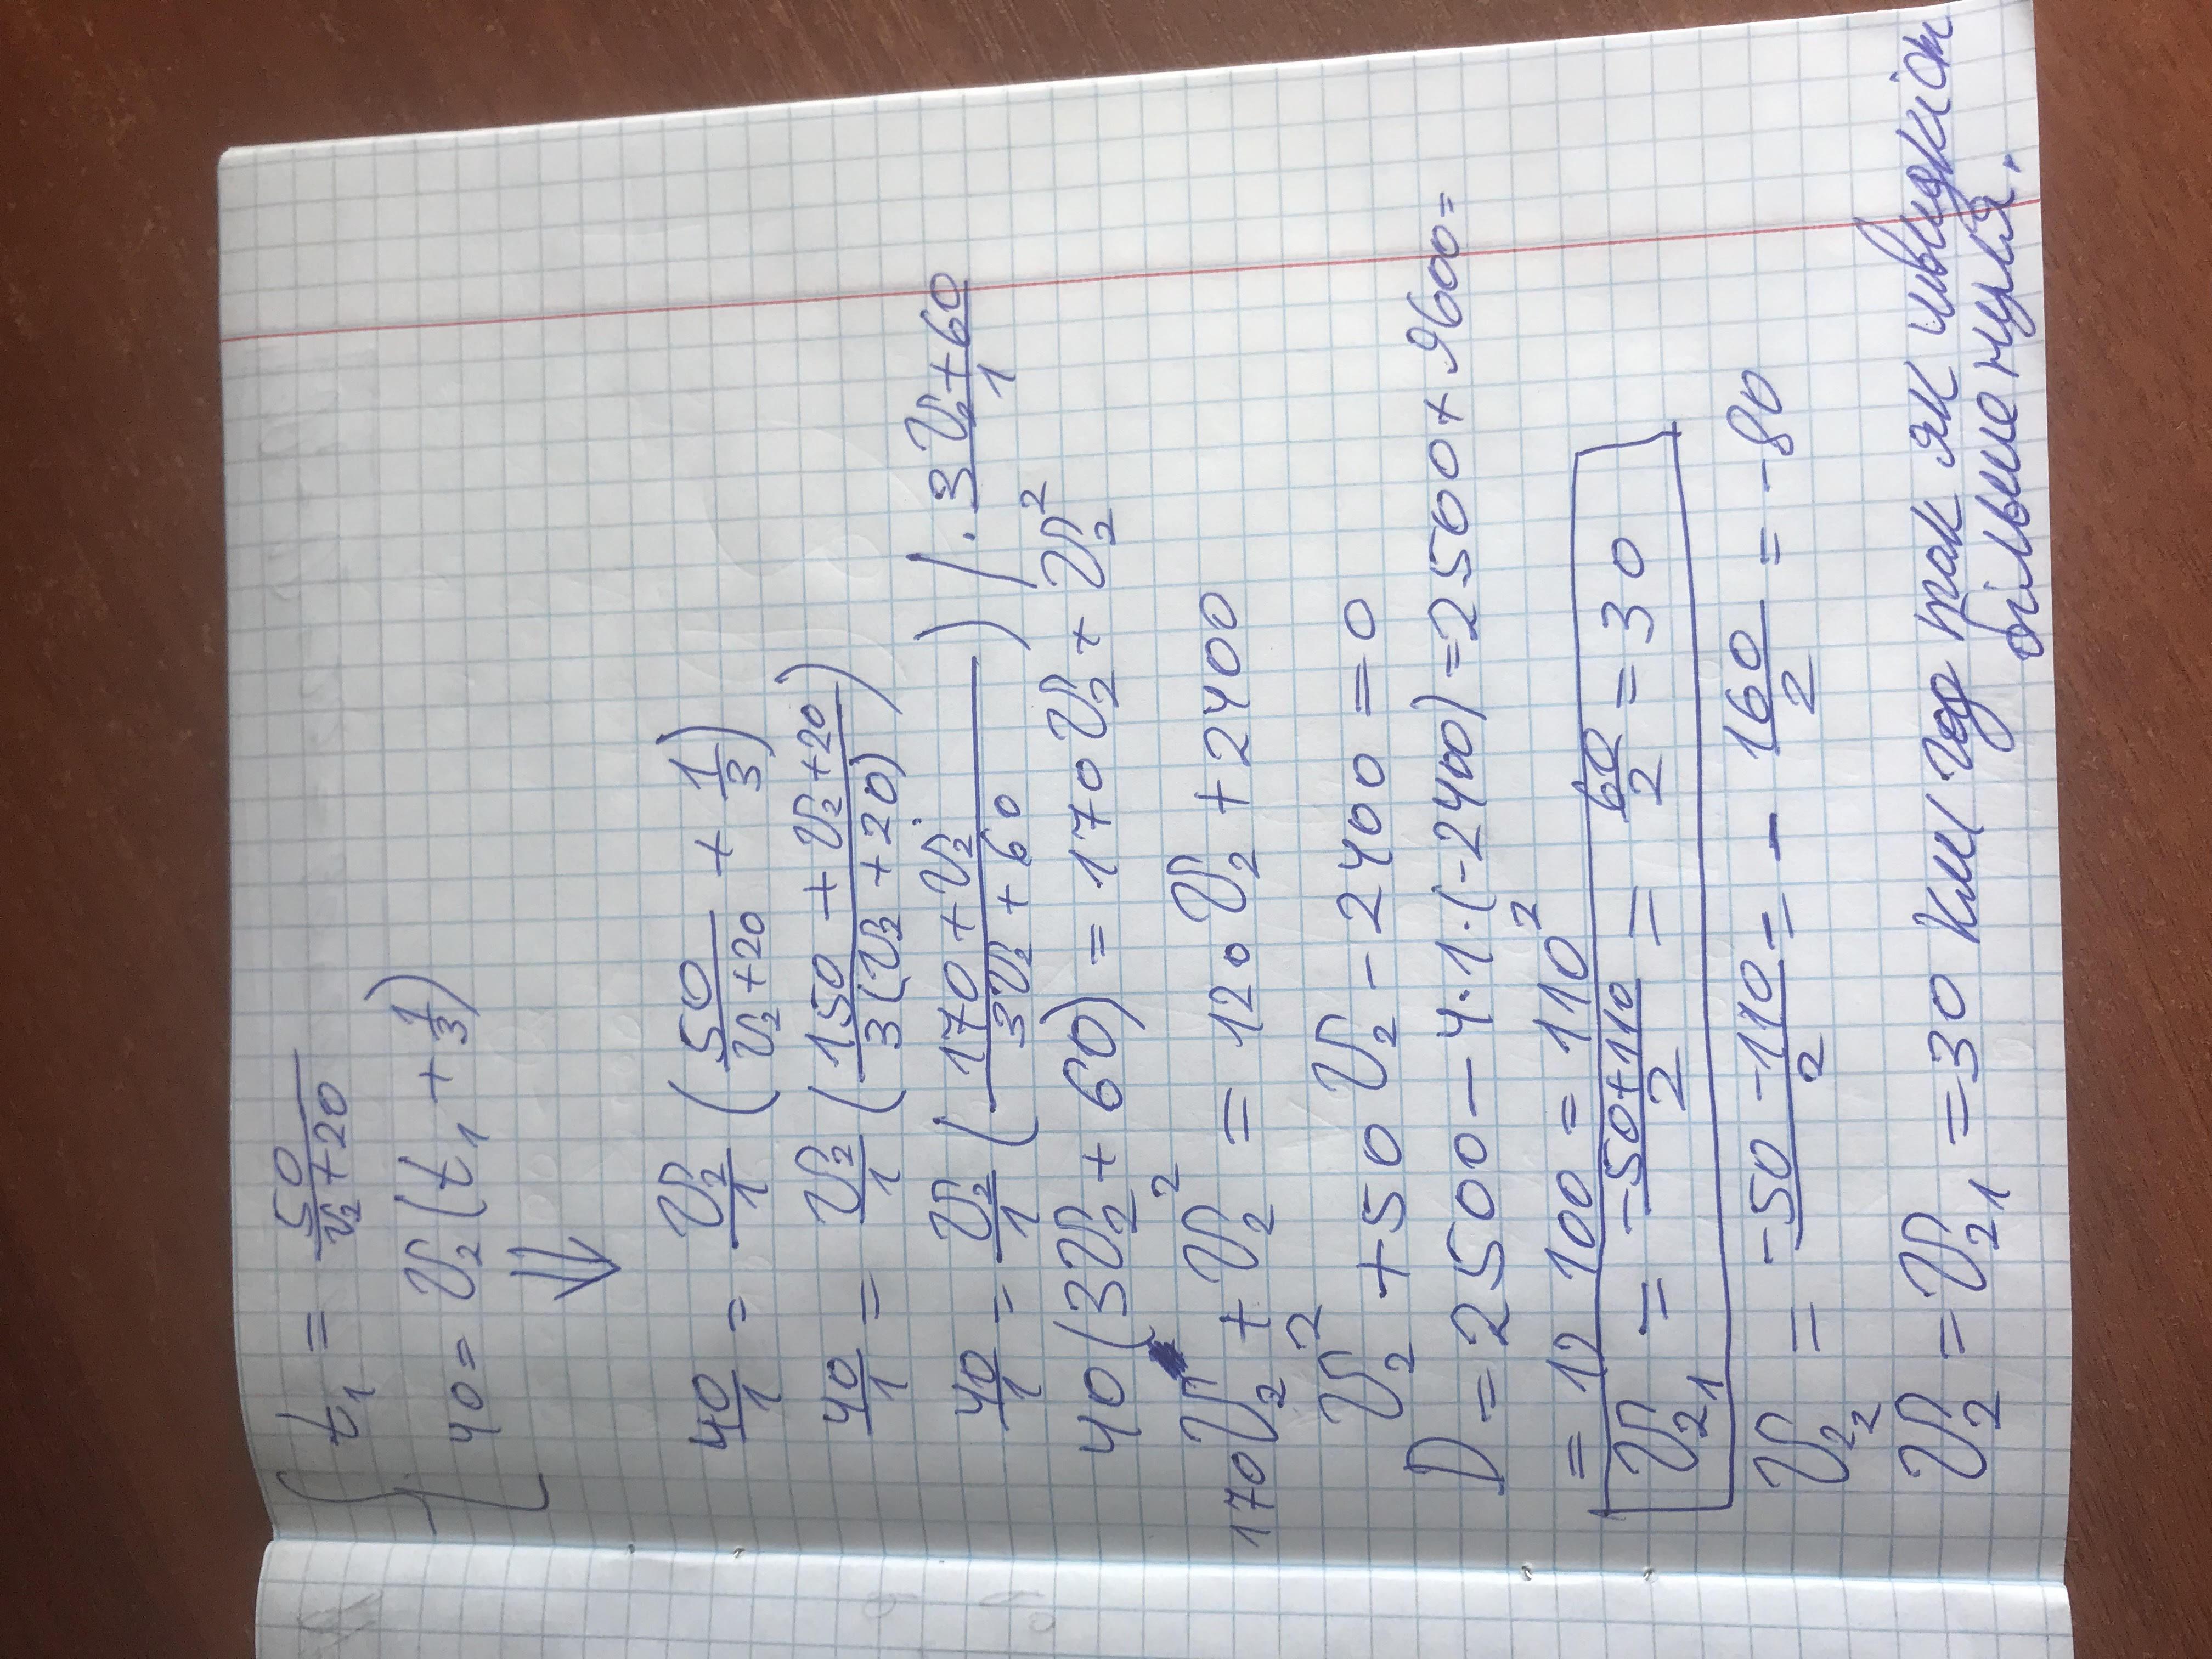 t₁ = 50/(v₂+20)
40 = v₂(t₁ + 1/3)
⇓
40/1 = v₂/1 (50/(v₂+20) + 1/3)
40/1 = v₂/1 ((150 + v₂+20)/(3(v₂+20)))
40/1 = v₂/1 ((170 + v₂)/(3v₂ + 60)) | · (3v₂+60)/1
40(3v₂ + 60) = 170v₂ + v₂²
170v₂ + v₂² = 120v₂ + 2400
v₂² + 50v₂ - 2400 = 0
D = 2500 - 4·1·(-2400) = 2500 + 9600 =
= 12 100 = 110²
v₂₁ = (-50+110)/2 = 60/2 = 30
v₂₂ = (-50-110)/2 = - 160/2 = -80
v₂ = v₂₁ = 30 км/год так як швидкіст
більше нуля.